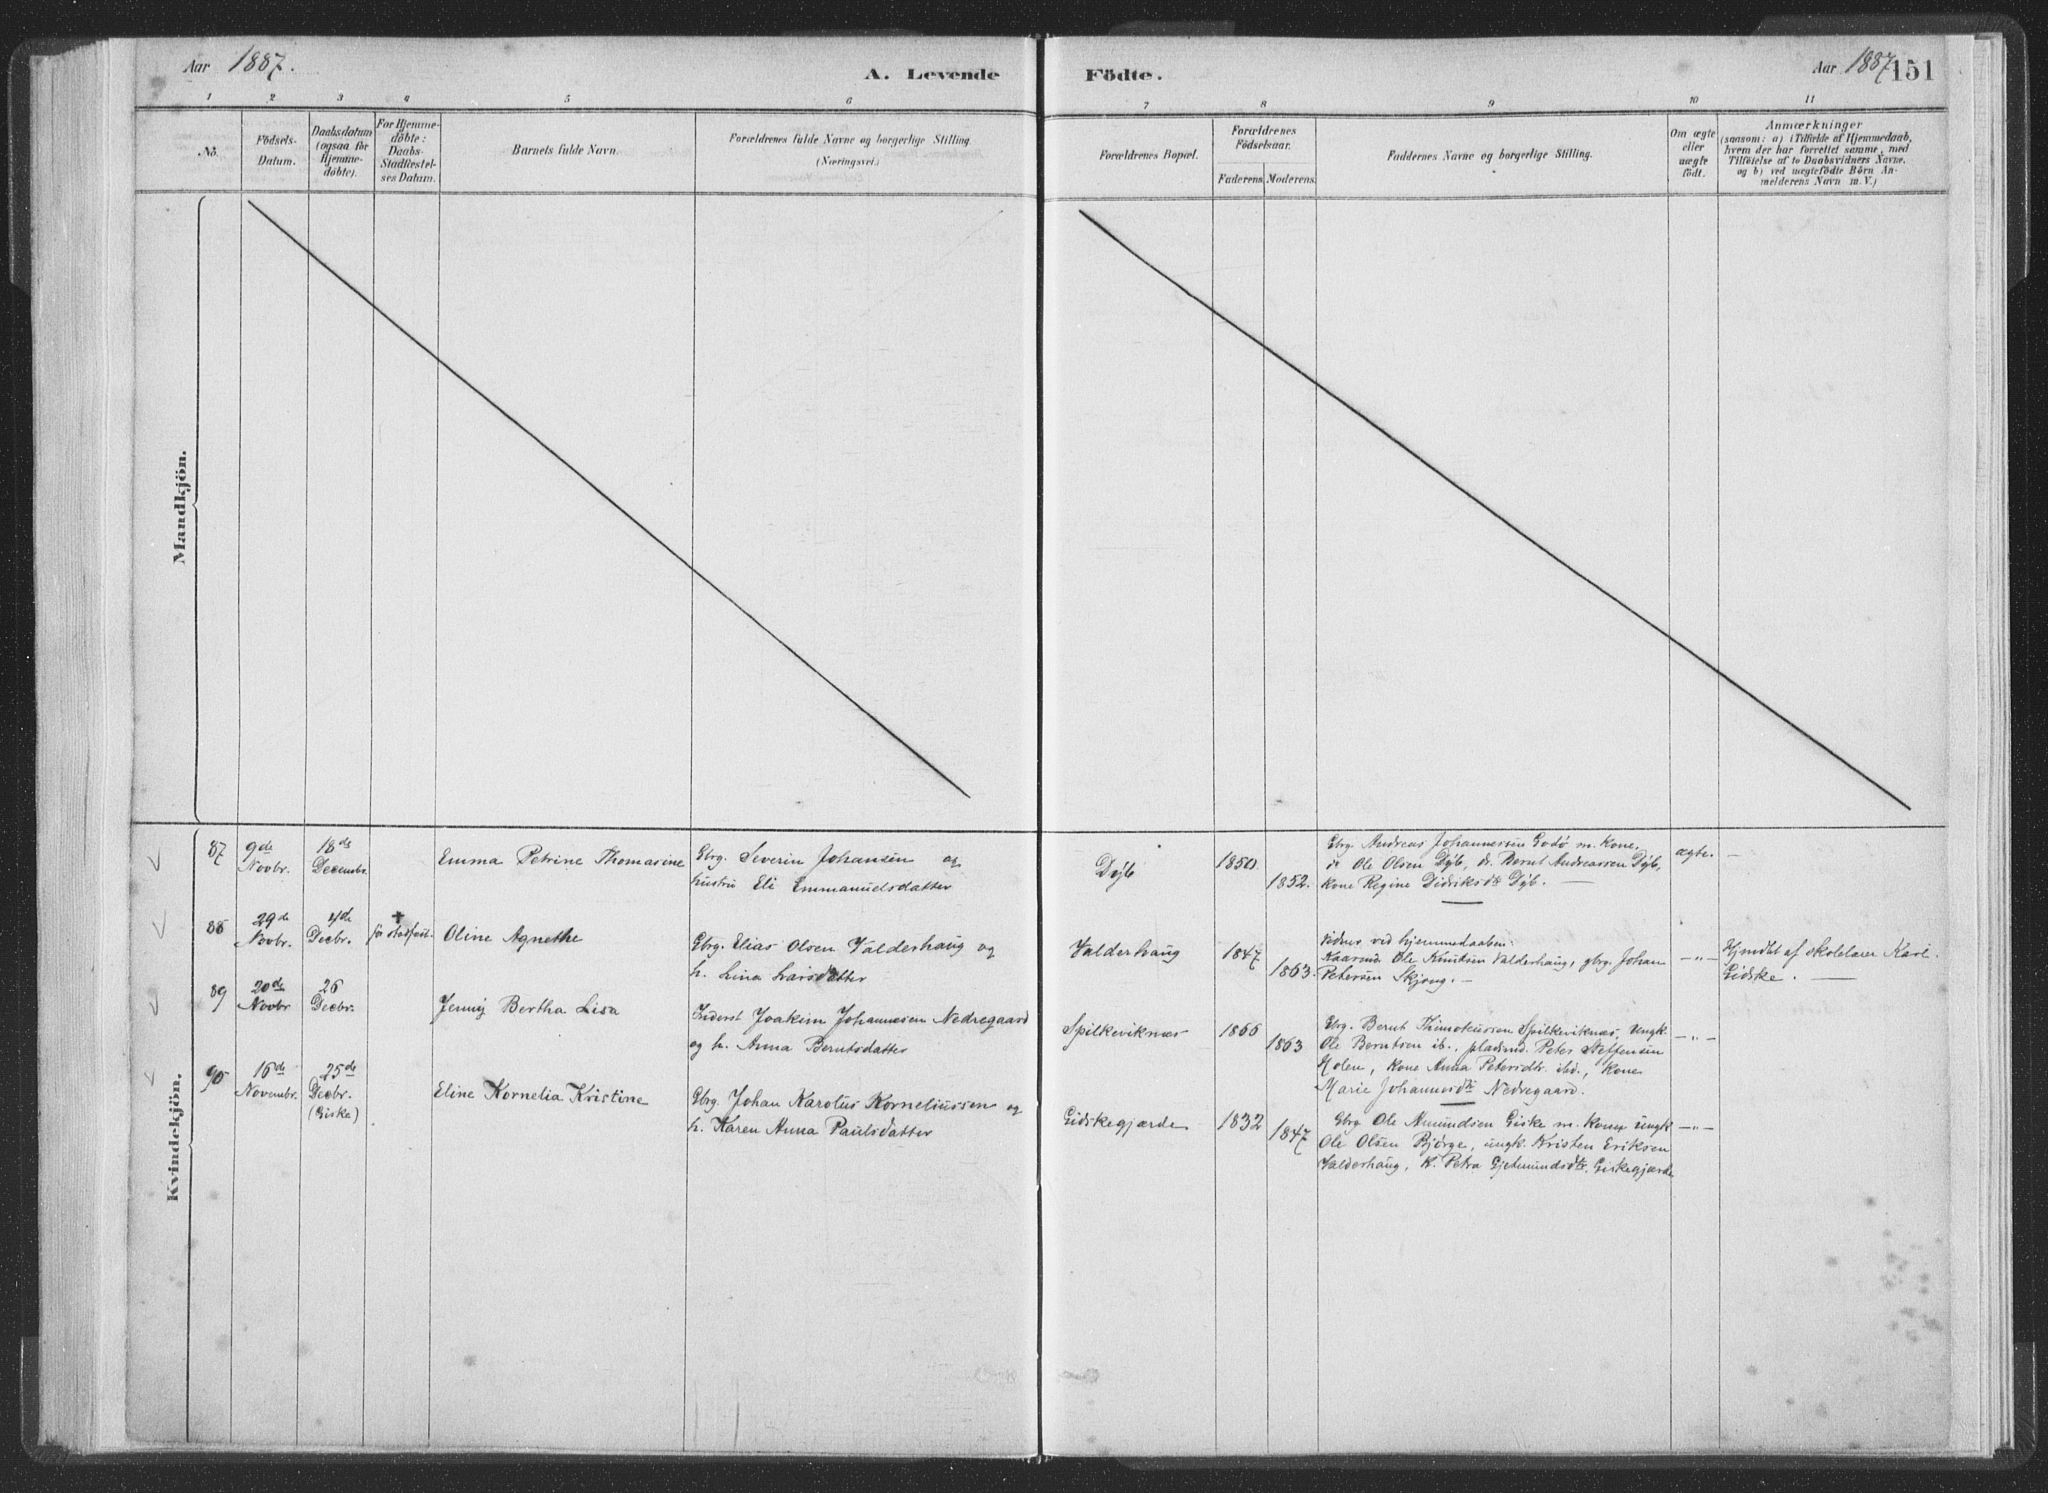 Aar 1887.
A. Levende Födte.
Aar 1887 151
1 2 3 4 5 6 7 8 9 10 11
No.
Födsels-
Datum.
Daabsdatum
(ogsaa for
Hjemme-
döbte).
For Hjemme-
döbte:
Daabs-
Stadfæstel-
ses Datum.
Barnets fulde Navn.
Forældrenes fulde Navne og borgerlige Stilling
(Næringsvei.)
Forældrenes Bopæl.
Forældrenes
Födselsaar.
Faderens. Moderens.
Faddernes Navne og borgerlige Stilling.
Om ægte
eller
uægte
födt.
Anmærkninger
(saasom: a) i Tilfælde af Hjemmedaab,
hvem der har forrettet samme, med
Tilföielse af to Daabsvidners Navne.
og b) ved uægtefödte Börn An-
melderens Navn m.V.)
Mandkjön.
Kvindekjön.
87
9de
Novbr.
18de
Decembr.
Emma Petrine Thomasine
Gbrg. Severin Johansen og
hustru Eli Emmanuelsdatter
Dyb
1850.
1852.
Gbrg. Andreas Johannessen Godø m. Kone,
Ole Olsen Dyb, Bernt Andreassen Dyb,
Kone Regine Didriksdtr Dyb. —
ægte. —
88
29de
Novbr.
4de
Decbr.
+
før stadfæst.
Oline Agnethe
Gbrg. Elias Olsen Valderhaug og
h. Lina Larsdatter
Valderhaug
1847
1863.
Vidner ved hjemmedaaben:
Kaarmd. Ole Knudsen Valderhaug, gbrg. Johan
Petersen Skjong. —
—"—
Hjmdbt af skolelærer Karl
Gidske. —
89
20de
Novbr
26
Decbr.
Jenny Bertha Lisa
Inderst Joakim Johannesen Nedregaard
og h. Anna Berntsdatter
Spilkeviknæs
1866
1863
Gbrg. Bernt Thimoteussen Spilkeviknæs, Ungk.
Ole Berntsen ib., pladsmd. Peter Steffensen
Holen, kone Anna Petersdtr. ibd., Kone
Marie Johannesdtr Nedregaard.
—"—
90
16de
Novembr.
25de
Decbr.
(Giske)
Eline Kornelia Kristine
Gbrg. Johan Karolus Korneliussen og
h. Karen Anna Paulsdatter
Gidskegjærde
1832
1847
Gbrg Ole Amundsen Giske m. Kone, ungk
Ole Olsen Bjørge, ungk. Kristen Eriksen
Valderhaug, K. Petra Gjetmundsdtr. Giskegjærde
—"—